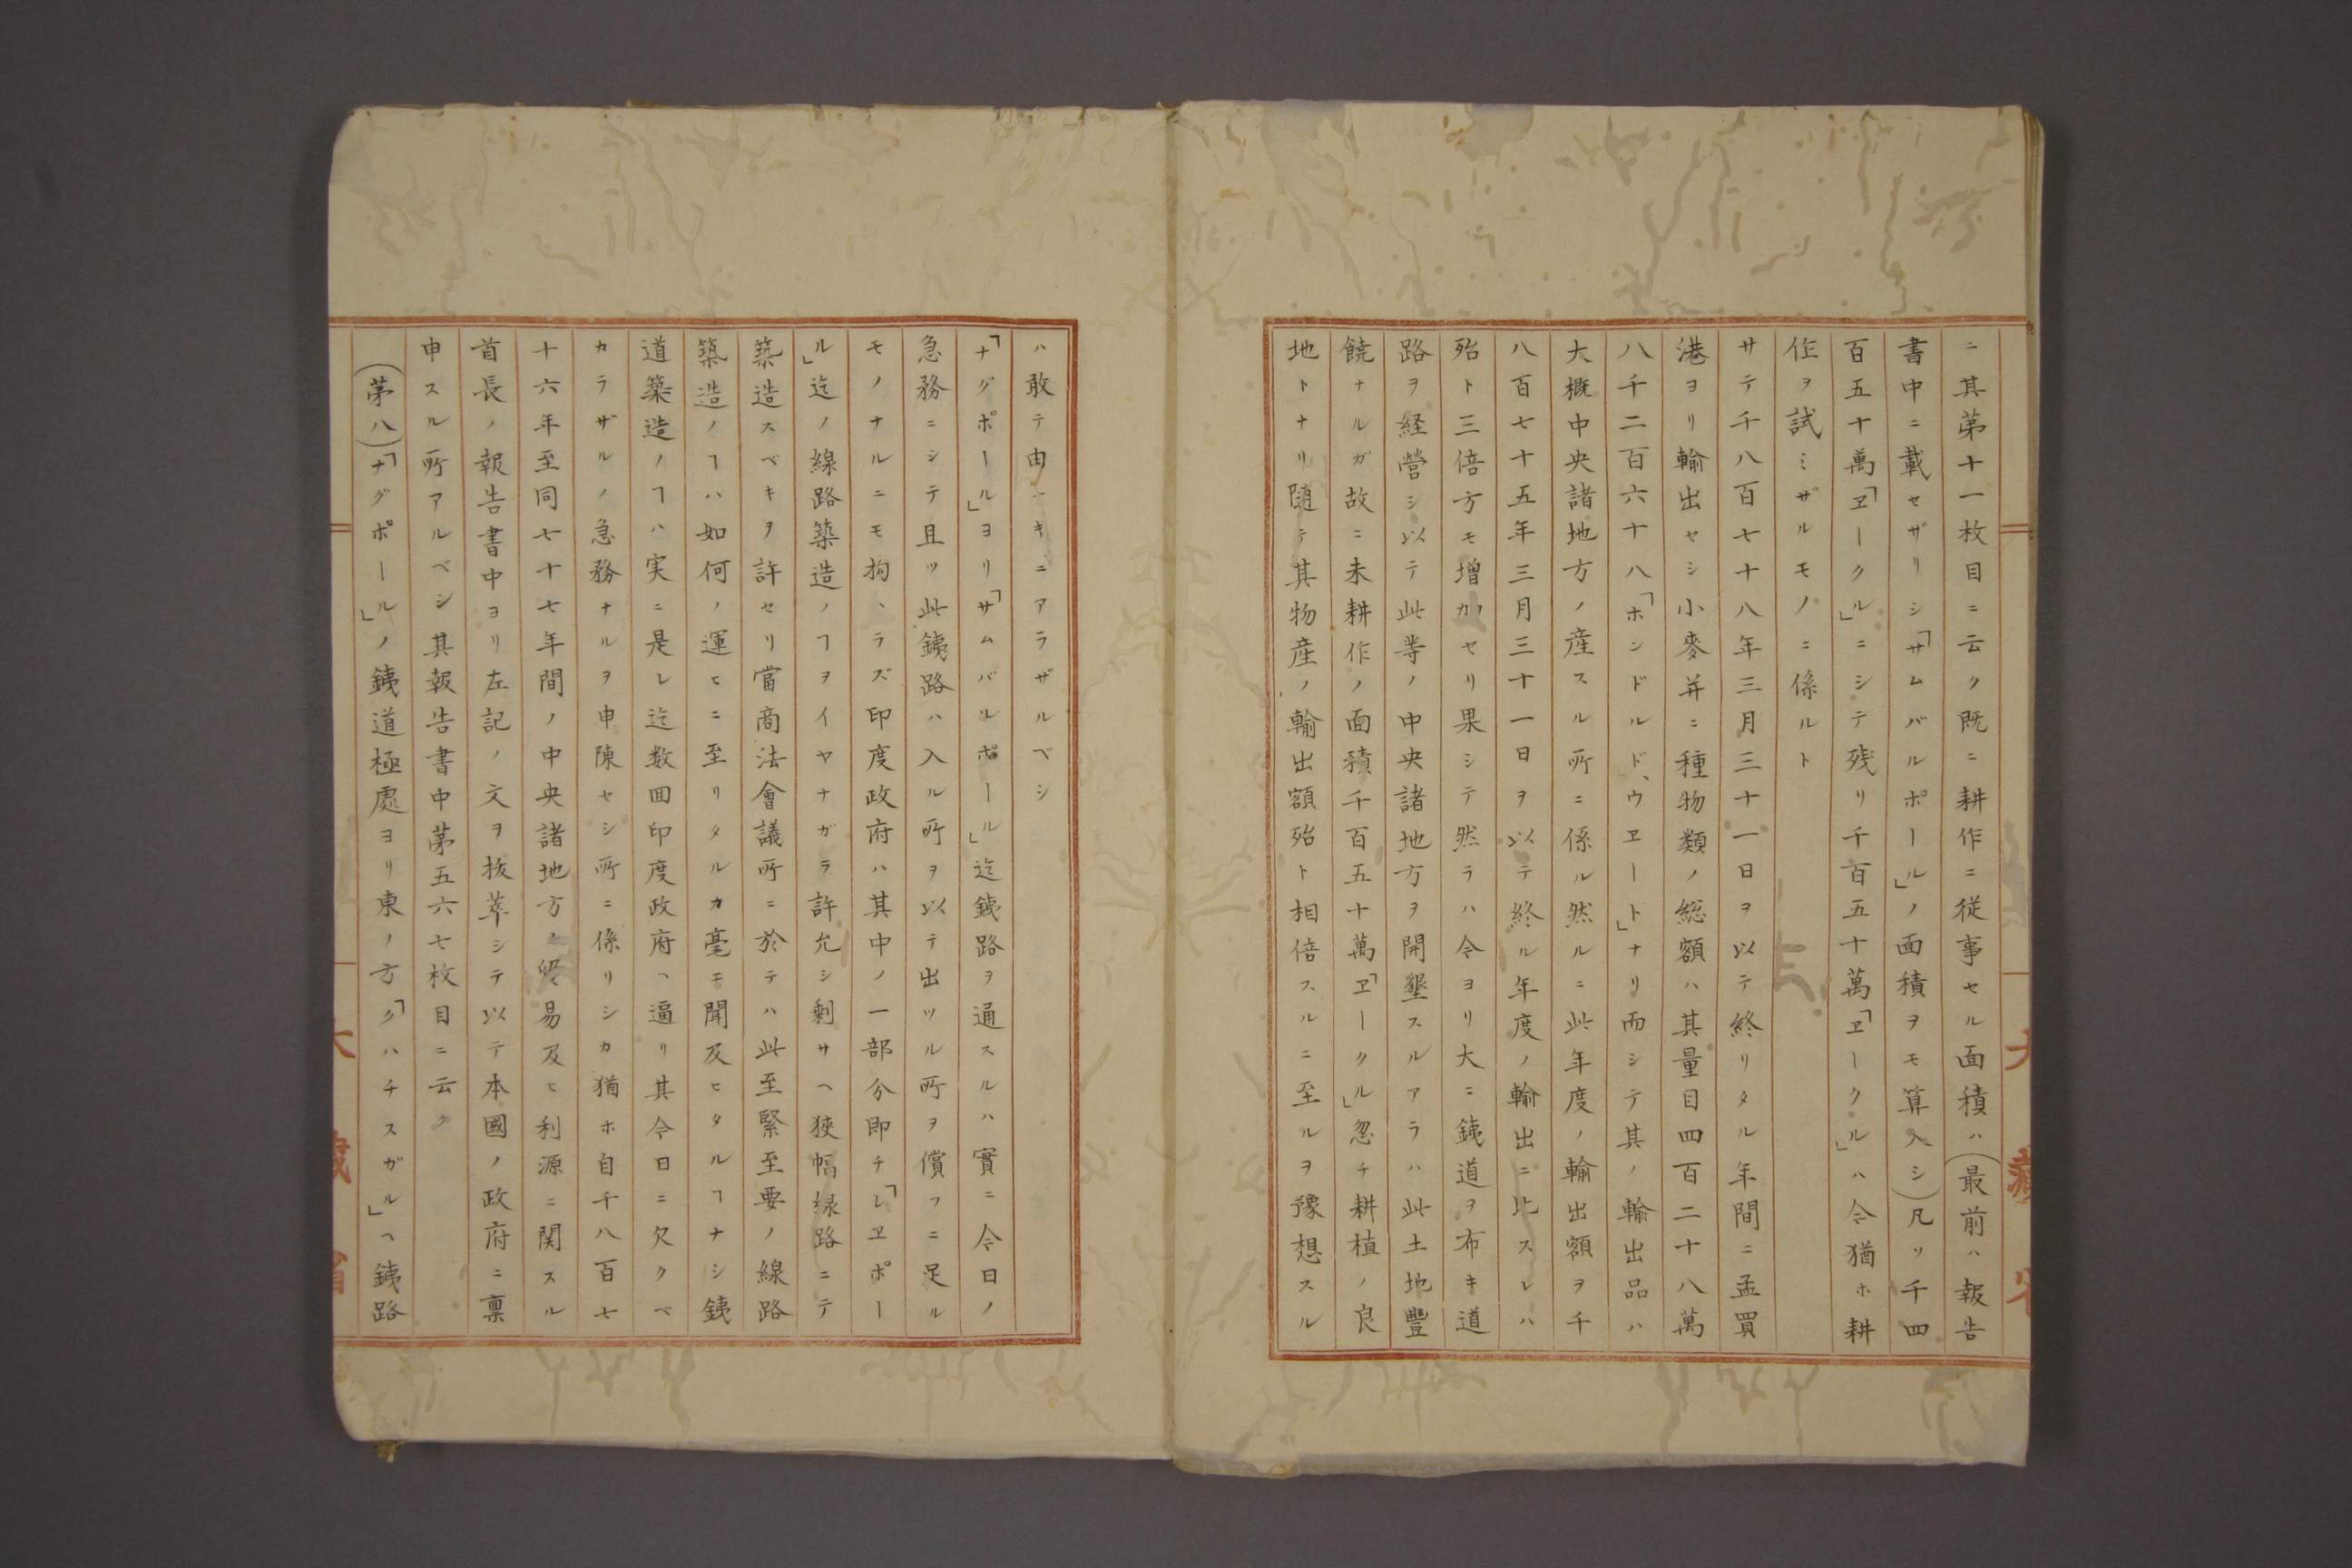 ニ其第十一枚目ニ云ク既ニ耕作ニ従事セル面積ハ(最前ハ報告
書中ニ載セザリシ「サムバルポール」ノ面積ヲモ算入シ)凡ソ千四
百五十萬「ヱークル」ニシテ残リ千百五十萬「ヱークル」ハ今猶ホ耕
作ヲ試ミザルモノニ係ルト
サテ千八百七十八年三月三十一日ヲ以テ終リタル年間ニ孟買
港ヨリ輸出セシ小麥并ニ種物類ノ総額ハ其量目四百二十八萬
八千二百六十八「ホンドルド、ウヱート」ナリ而シテ其ノ輸出品ハ
大概中央諸地方ノ産スル所ニ係ル然ルニ此年度ノ輸出額ヲ千
八百七十五年三月三十一日ヲ以テ終ル年度ノ輸出ニ比スレハ
殆ト三倍方モ増加セリ果シテ然ラハ今ヨリ大ニ銕道ヲ布キ道
路ヲ経營シ以テ此等ノ中央諸地方ヲ開墾スルアラハ此土地豐
饒ナルガ故ニ未耕作ノ面積千百五十萬「ヱークル」忽チ耕植ノ良
地トナリ随テ其物産ノ輸出額殆ト相倍スルニ至ルヲ豫想スル
ハ敢テ由ーキニアラザルベシ
「ナグポール」ヨリ「サムバルポール」迄銕路ヲ通スルハ實ニ今日ノ
急務ニシテ且ツ此銕路ハ入ル所ヲ以テ出ツル所ヲ償フニ足ル
モノナルニモ拘ヽラズ印度政府ハ其中ノ一部分即チ「レヱポー
ル」迄ノ線路築造ノヿヲイヤナガラ許允シ剰サヘ狹幅線路ニテ
築造スベキヲ許セリ當商法會議所ニ於テハ此至緊至要ノ線路
築造ノヿハ如何ノ運ヒニ至リタルカ毫モ聞及ヒタルヿナシ銕
道築造ノヿハ実ニ是レ迄数回印度政府ヘ逼リ其今日ニ欠クベ
カラザルノ急務ナルヲ申陳セシ所ニ係リシカ猶ホ自千八百七
十六年至同七十七年間ノ中央諸地方ノ貿易及ヒ利源ニ関スル
首長ノ報告書中ヨリ左記ノ文ヲ抜萃シテ以テ本國ノ政府ニ禀
申スル所アルベシ其報告書中苐五六七枚目ニ云ク
(苐八)「ナグポール」ノ銕道極處ヨリ東ノ方「クハチスガル」ヘ銕路
大藏省